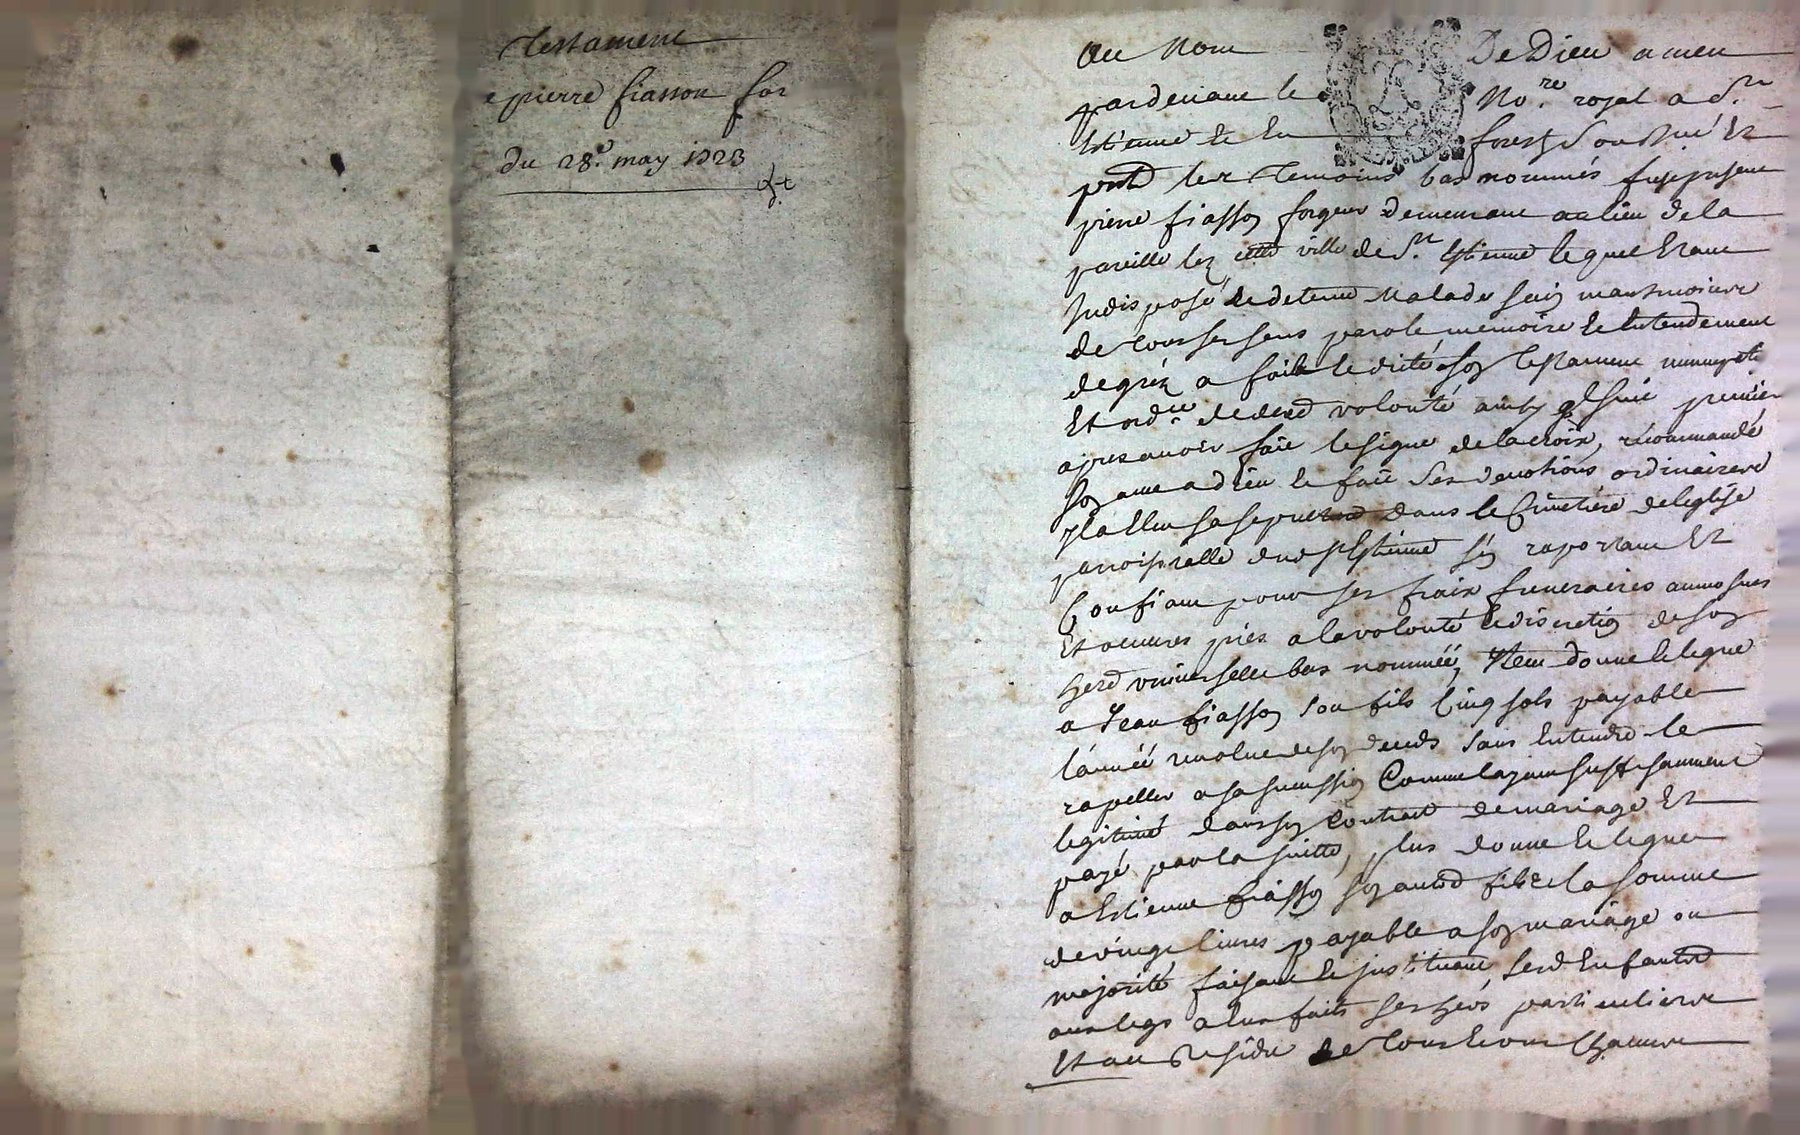 Testament
pierre fiasson for
du 28e may 1723
Au Nom De Dieu amen
pardevant le No.re royal a St
Estienne en forest soussigné Et
pnt les Temoins bas nommés fust present
pierre fiasson forgeur demeurant au lieu de la
pareille lez cette ville de St Estienne lequel Etant
Indisposé et detenu Malade sain neantmoins
de tous ses sens parole memoire et Entendement
de gréz a fait et dicté son Testament nuncupatif
Et ordre de dere volonté ainsy que suit premier
apres avoir fait le signe de la croix, recommandé
son ame a dieu et fait ses devotions ordinaires
Il a Elleu sa sepulture dans le Cimetiere de leglise
parroissialle dud St Estienne s'en raportant Et
Confiant pour ses fraix funeraires aumosnes
Et oeuvres pies a la volonté et discretion de son
herre universelle bas nommée, Item donne et legue
a Jean fiasson son fils Cinq sols payable
l'année revolue de son deceds sans Entendre le
rapeller a sa succession Comme layant suffisamment
legitimé dans son Contract de mariage Et
payé par la suitte, plus donne et legue
a Estienne fiasson son autre fils la somme
de vingt livres payable a son mariage ou
majorité faisant et instituant sesd Enfants
aux legs a eux faits ses hers particuliers
Et au Residu de Tous Et uns Chacuns